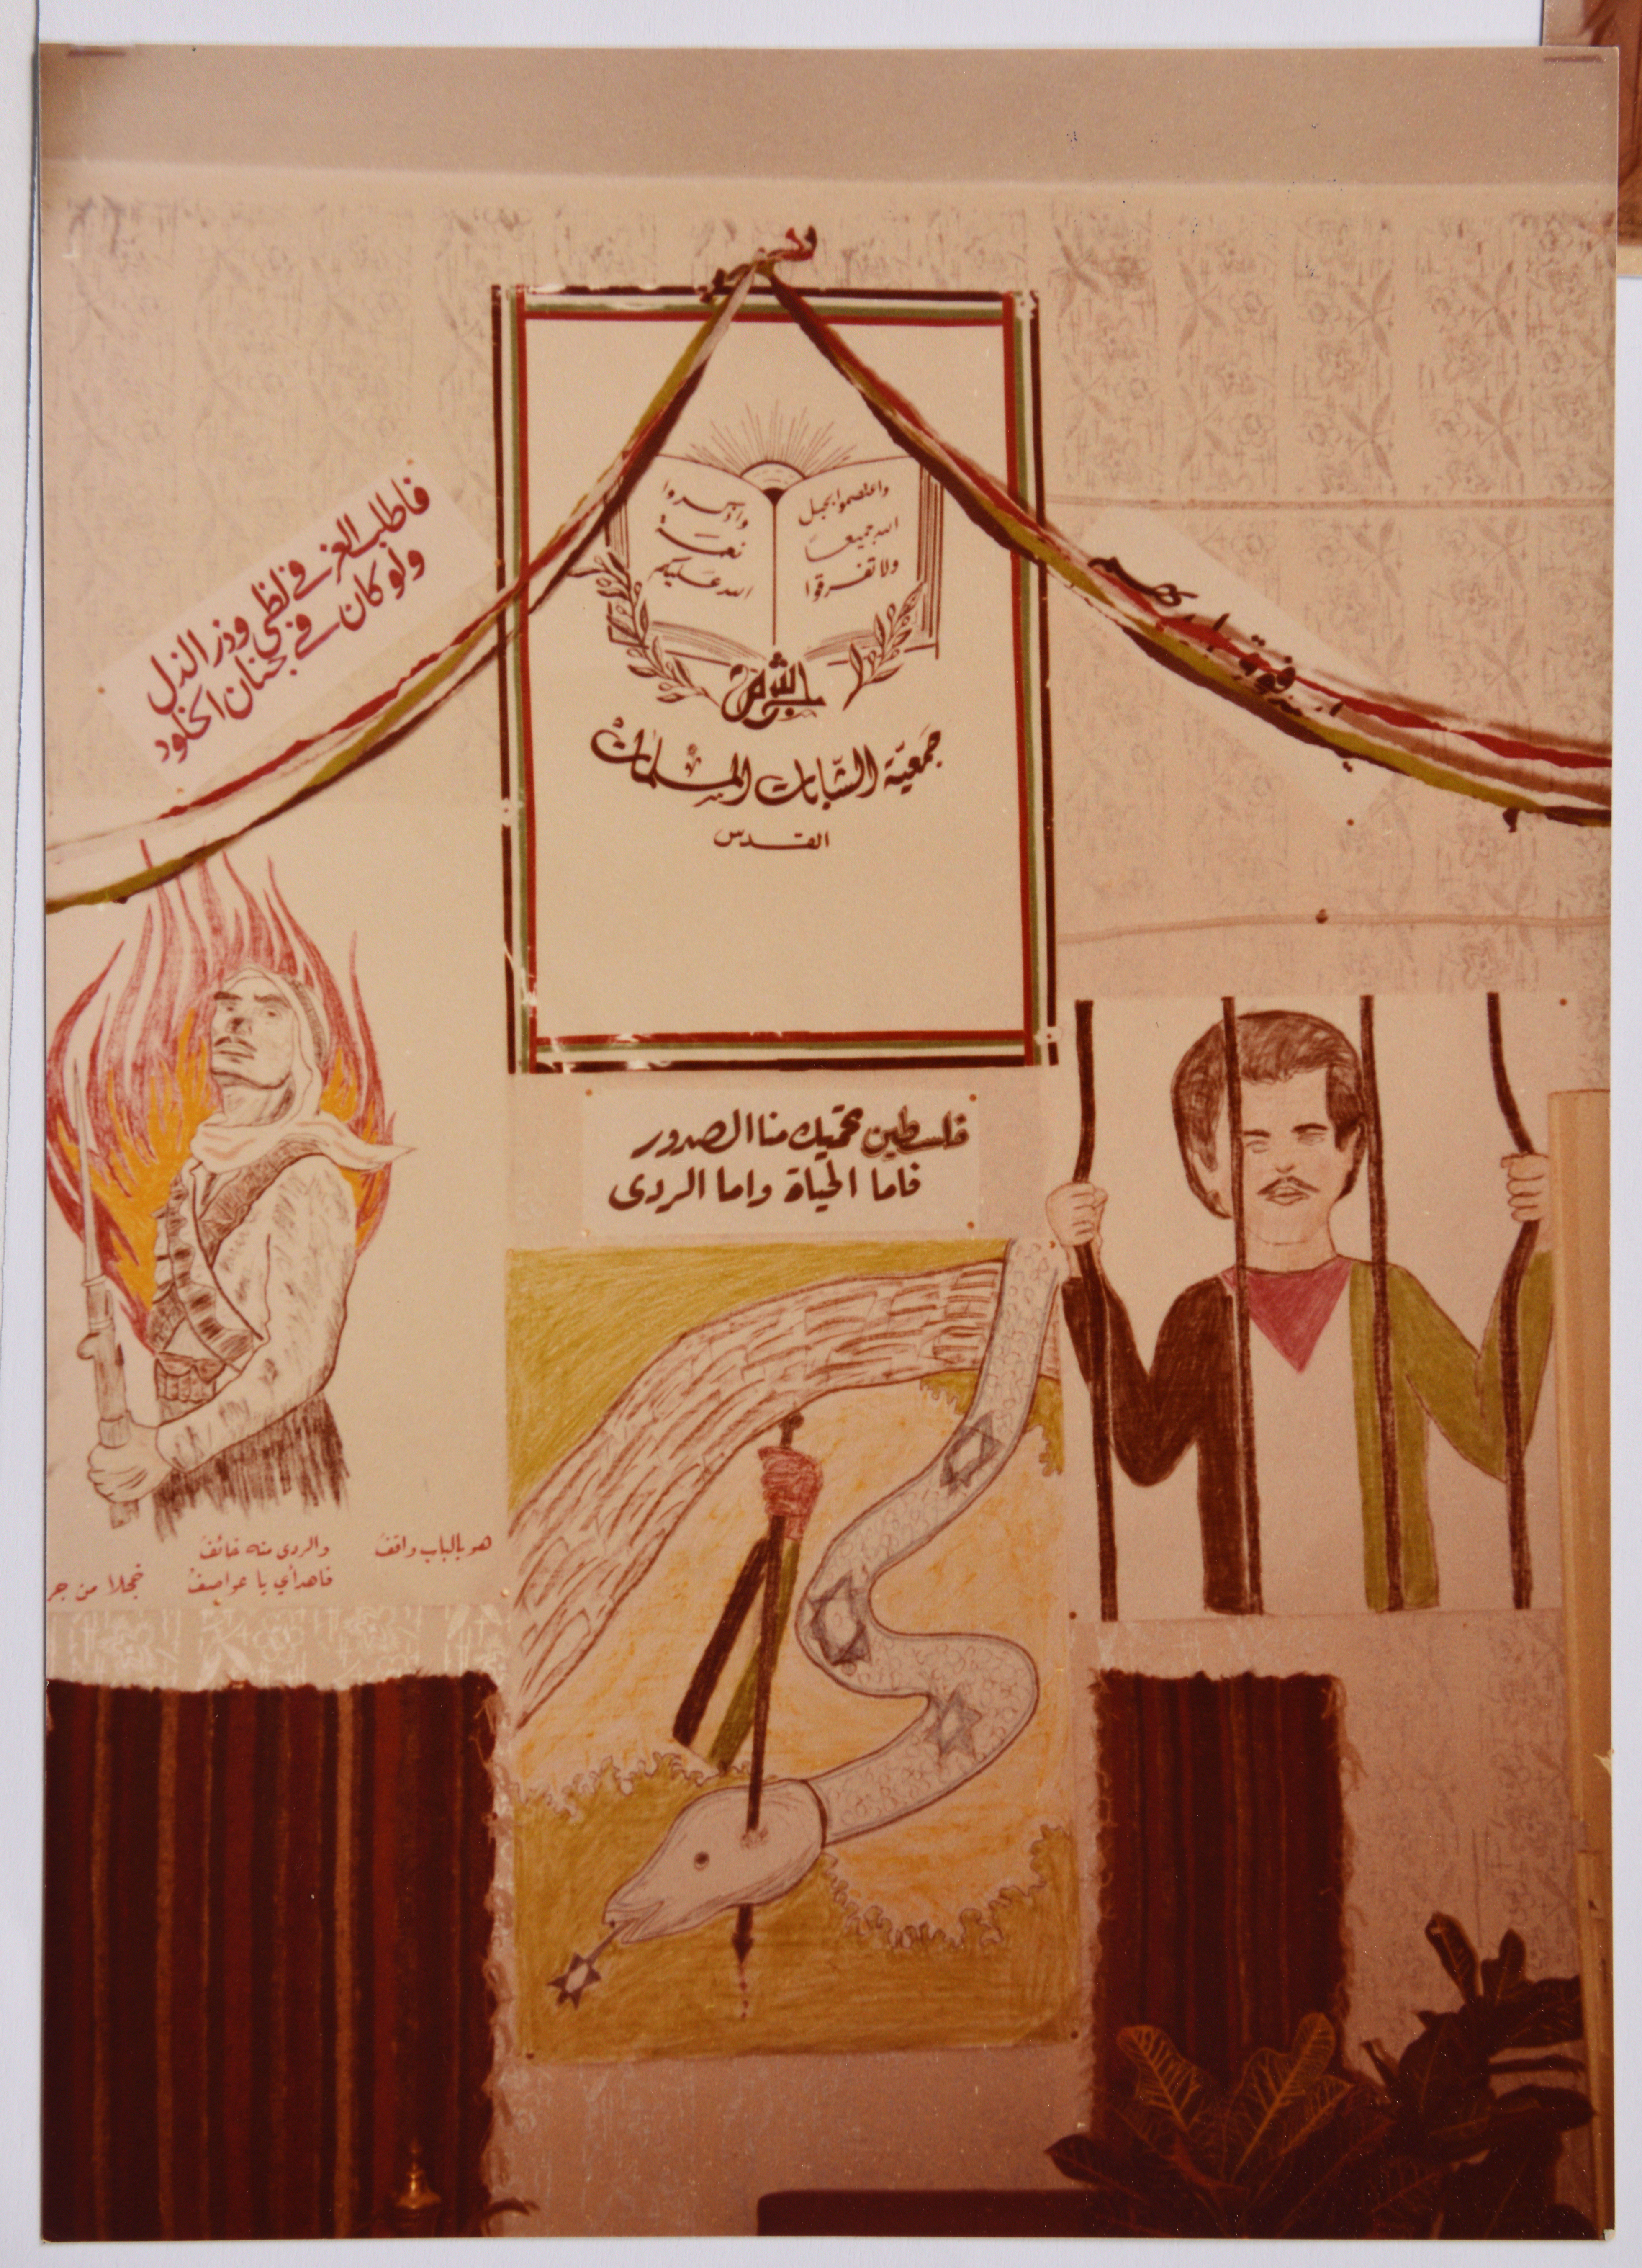 فاطلب العز في لظى وذر الذل
ولو كان في جنان الخلود
واعتصموا بحبل
الله جميعا
ولا تفرقوا
واذكروا
نعمة
الله عليكم
جمعية الشابات المسلمات
القدس
فلسطين تحميك منا الصدور
فاما الحياة واما الردى
هو بالباب واقف والردى منه خائف
فاهدأي يا عواصف خجلا من جر